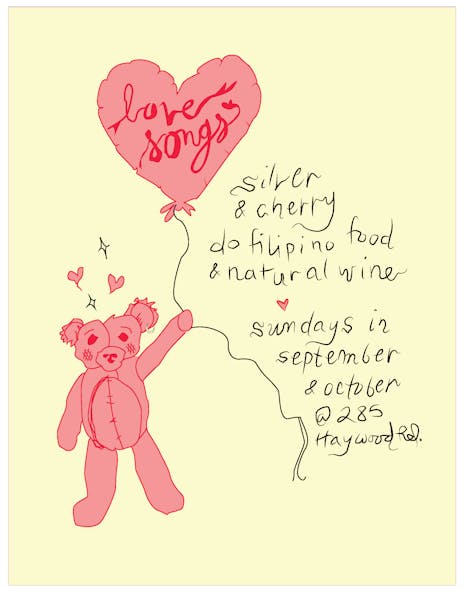 love
songs
silver
& cherry
do filipino food
& natural wine
sundays in
september
& october
@ 285
Haywood Rd.